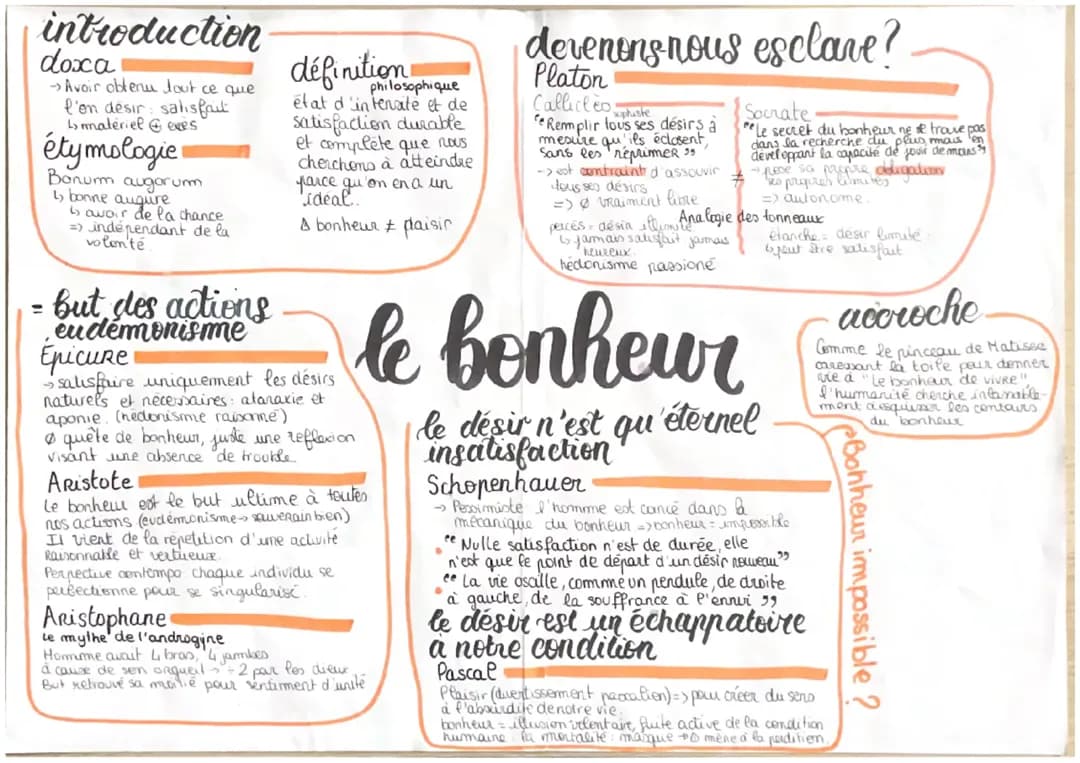 introduction
doxa
→ Avoir obtenu tout ce que
l'on désir : satisfait
↳ matériel ⊕ exès
étymologie
Bonum augorum
↳ bonne augure
↳ avoir de la chance
=> indépendant de la
volonté.
définition
philosophique
état d'intensité et de
satisfaction durable
et complète que nous
cherchons à atteindre
parce qu'on en a un
idéal.
Δ bonheur ≠ plaisir
devenons-nous esclave ?
Platon
Calliclès
sophiste
"Remplir tous ses désirs à
mesure qu'ils éclosent,
sans les réprimer"
-> est contraint d'assouvir
tous ses désirs
=> ø vraiment libre
≠
Socrate
"Le secret du bonheur ne se trouve pas
dans la recherche du plus mais en
développant la capacité de jouir de moins"
→ pose sa propre obligation
ses propres limites
=> autonome.
Analogie des tonneaux
percés = désir illimité
↳ jamais satisfait jamais
heureux.
hédonisme passioné
étanche = désir limité
↳ peut être satisfait
= but des actions
eudémonisme
Épicure
→ satisfaire uniquement les désirs
naturels et nécessaires : ataraxie et
aponie. (hédonisme raisonné)
ø quête de bonheur, juste une reflexion
visant une absence de trouble.
Aristote
Le bonheur est le but ultime à toutes
nos actions (eudémonisme → souverain bien)
Il vient de la répétition d'une activité
Raisonnable et vertueuse.
Perpective contempo chaque individu se
perfectionne pour se singularisé.
Aristophane
Le mythe de l'androgine
Homme avait 4 bras, 4 jambes
à cause de son orgueil → ÷2 par les dieux
But retrouvé sa moitié pour sentiment d'unité
le bonheur
accroche
Comme le pinceau de Matisse
caressant la toile pour donner
vie à "Le bonheur de vivre"
l'humanité cherche inlassable-
ment à esquisser les contours
du bonheur
le désir n'est qu'éternel
insatisfaction
Schopenhauer
→ Pessimiste l'homme est coincé dans la
mécanique du bonheur => bonheur = impossible
"Nulle satisfaction n'est de durée, elle
n'est que le point de départ d'un désir nouveau"
"La vie oscille, comme un pendule, de droite
à gauche, de la souffrance à l'ennui"
le désir est un échappatoire
à notre condition
Pascal
Plaisir (divertissement pascalien) => pour créer du sens
à l'absurdité de notre vie.
bonheur = illusion volontaire, fuite active de la condition
humaine : la mortalité : masque → mène à la perdition.
Bonheur impossible ?